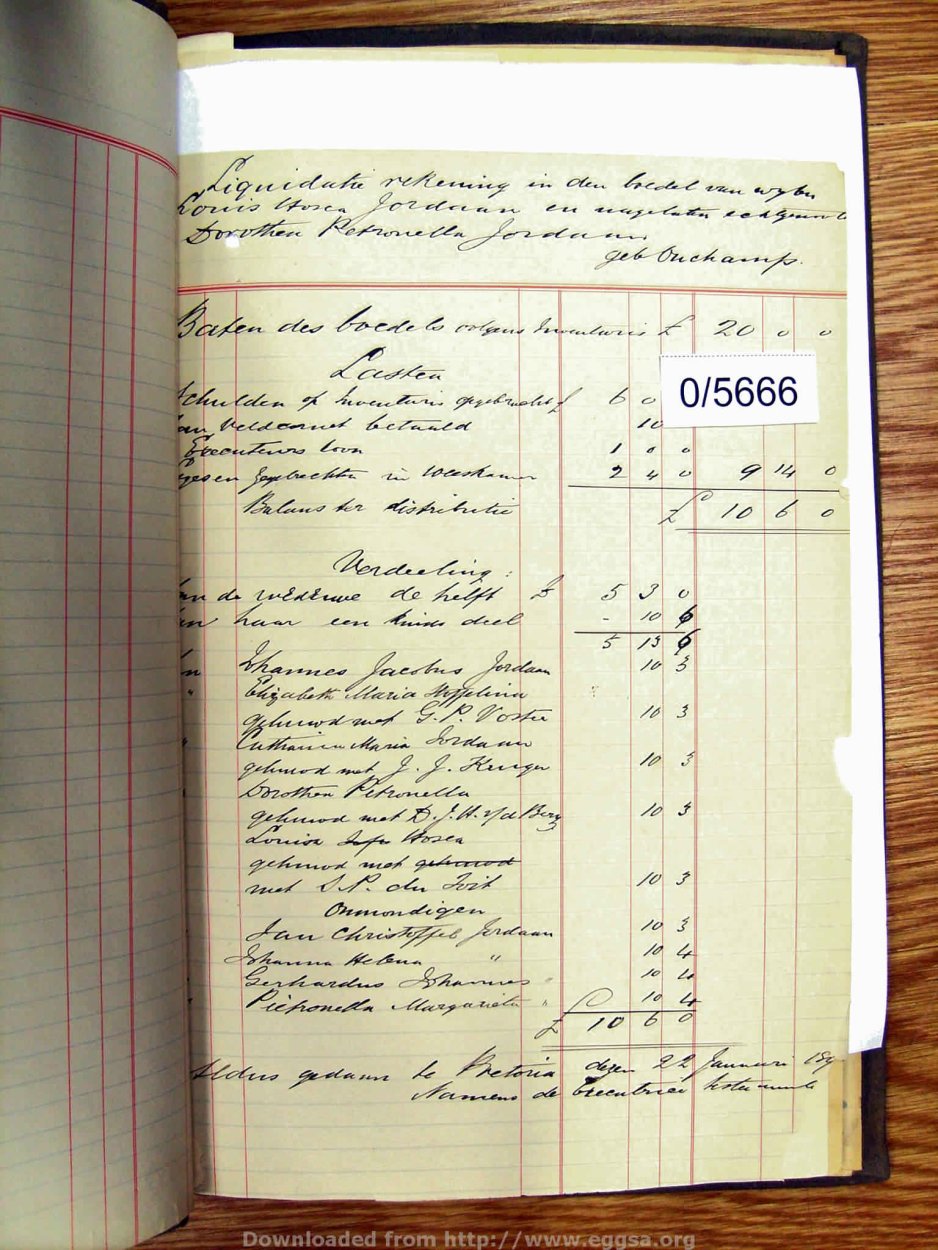 Liquidatie rekening in den boedel van wylen
Louis Hosea Jordaan en nagelaten echtgenoote
Dorothea Petronella Jordaan
geb Duchamps.
Baten des boedels volgens Inventaris £ 20 0 0
0/5666
Lasten
Schulden op Inventaris opgebracht £ 6 0
an Veldcornet betaald 10
Executeurs loon 1 0 0
in Weeskamer 2 4 0 9 14 0
Balans ter distributie £ 10 6 0
Verdeeling :
an de weduwe de helft £ 5 3 0
an haar een kinds deel - 10 6
5 13 6
Johannes Jacobus Jordaan 10 3
" Elizabeth Maria
gehuwd met G. P. Vorster 10 3
" Catharina Maria Jordaan
gehuwd met J. J. Kruger 10 3
" Dorothea Petronella
gehuwd met D. J. H. v/d Berg 10 3
Louisa Hosea
gehuwd met gehuwd
met S. P. du Toit 10 3
Onmondigen
Jan Christoffel Jordaan 10 3
Johanna Helena " 10 4
Gerhardus Johannes " 10 4
" Pietronella Margarieta " 10 4
£ 10 6 0
Aldus gedaan te Pretoria dezen 22 Januari 189
Namens de Executrice testamentair
Downloaded from http://www.eggsa.org